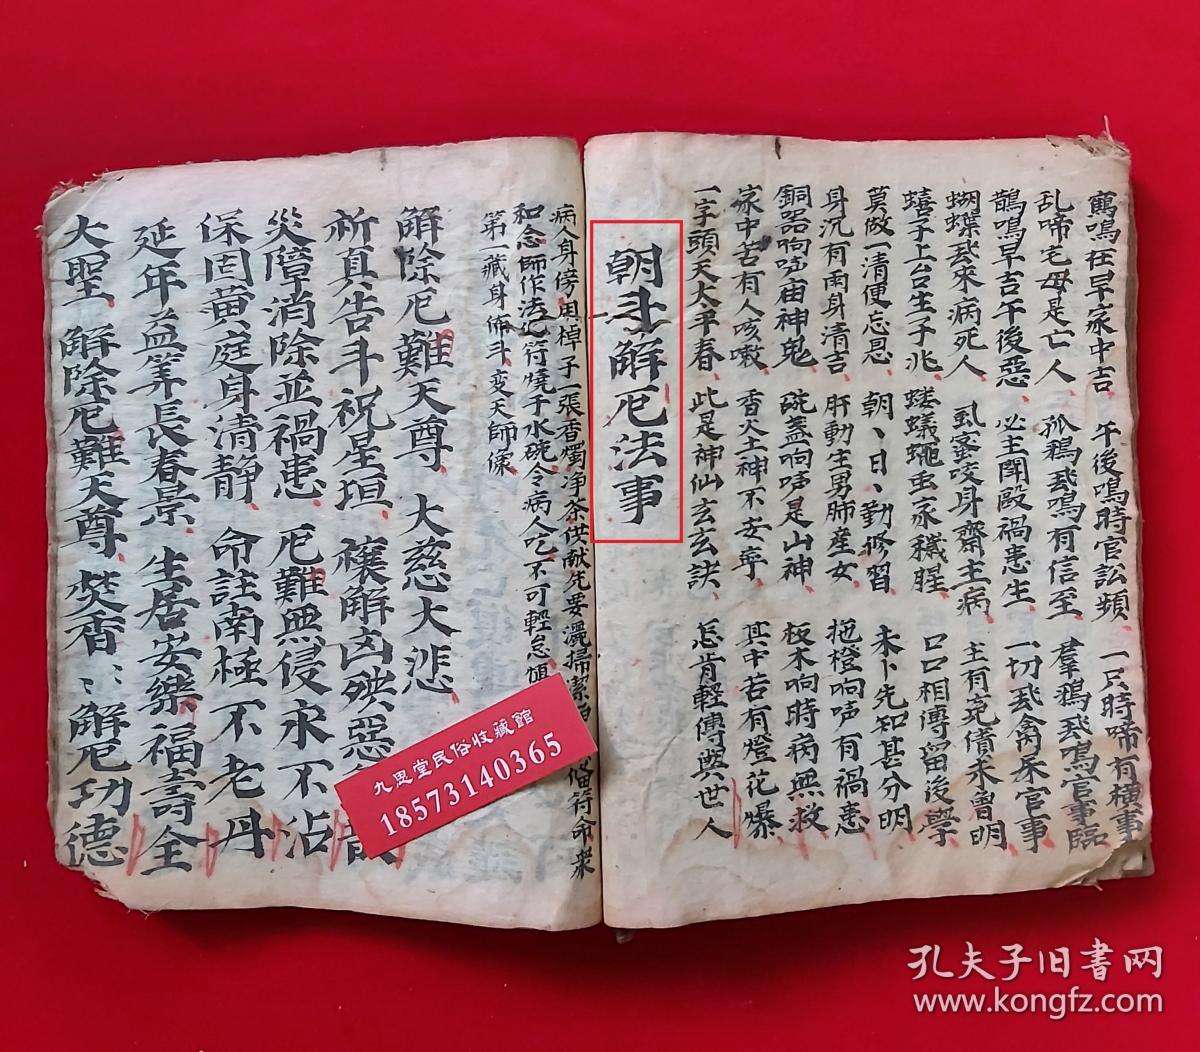 寯鳴在早家中吉 午後鳴時官訟頻 一只時啼有橫事
乱啼宅母是亡人 孤鴉武鳴有信至 羣鴉武鳴官事臨
鵲鳴早吉午後惡 必主鬪毆禍患生 一切武禽屎官事
蝴蝶武來病死人 虱蜜咬身齋主病 主有冤債未曾明
蟢子上台生子兆 螻蟻蠅虫家穢腥 口口相傳留後學
莫做一清便忘恩 朝、日、勤修習 未卜先知甚分明
身沉有雨身清吉 肝動生男肺產女 拖橙响声有禍患
銅器响吐庙神鬼 碗盖响声是山神 板木响時病無救
家中若有人咳嗽 香火土神不安寧 其中若有燈花爆
一字頭天太平春 此是神仙玄玄訣 怎肯輕傳與世人
朝斗解厄法事
病人身傍用棹子一張香燭净茶供献先要灑掃潔 符命眾
和念師作法記符燒于水碗令病人吃不可輕怠傾
第一藏身佈斗变天師像
解除厄難天尊 大慈大悲
祈真告斗祝星垣 禳解凶殃惡
災障消除並禍患 厄難無侵永不沾
保固黄庭身清静 命註南極不老丹
延年益筭長春景 生居安樂福壽全
大聖解除厄難天尊 焚香、、解厄功德
九思堂民俗收藏館
18573140365
孔夫子旧书网
www.kongfz.com